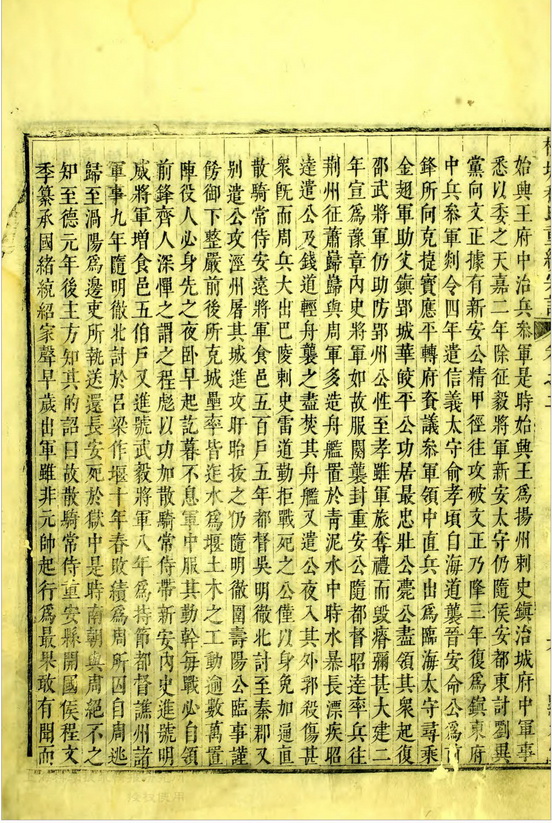 始興王府中治兵叅軍是時始興王爲揚州刺史鎮治城府中軍事
悉以委之天嘉二年除征毅將軍新安太守仍隨侯安都東討劉異
黨向文正據有新安公精甲徑徃攻破文正乃降三年復爲鎮東府
中兵叅軍剡令四年遣信義太守俞孝頃自海道襲晉安命公爲前
鋒所向克捷實應平轉府咨議叅軍領中直兵出爲臨海太守尋乘
金翅軍助父鎮郢城華皎平公功居最忠壯公薨公盡領其衆起復
邵武將軍仍助防郢州公性至孝雖軍旅奪禮而毀瘠彌甚大建二
年宣爲豫章內史將軍如故服闋襲封重安公隨都督昭達率兵徃
荆州征蕭巋巋與周軍多造舟艦置於青泥水中時水暴長漂疾昭
達遣公及錢道輕舟襲之盡焚其舟艦又遣公夜入其外郛殺傷甚
衆旣而周兵大出巴陵刺史雷道勤拒戰死之公僅以身免加通直
散騎常侍安遠將軍食邑五百戶五年都督吳明徹北討至秦郡又
別遣公攻涇州屠其城進攻盱眙拔之仍隨明徹圍壽陽公臨事謹
飭御下整嚴前後所克城壘率皆迮水爲堰土木之工動逾數萬置
陣役人必身先之夜卧早起訖暮不息軍中服其勤幹每戰必自領
前鋒齊人深憚之謂之程彪以功加散騎常侍帶新安內史進號明
威將軍增食邑五伯戶又進號武毅將軍八年爲持節都督譙州諸
軍事九年隨明徹北討於呂梁作堰十年春敗績爲周所囚自周逃
歸至渦陽爲邊吏所執送還長安死於獄中是時南朝與周絕不之
知至德元年後主方知其的詔曰故散騎常侍重安縣開國侯程文
季纂承國緒統紹家聲早歲出軍雖非元帥起行爲最果敢有聞而